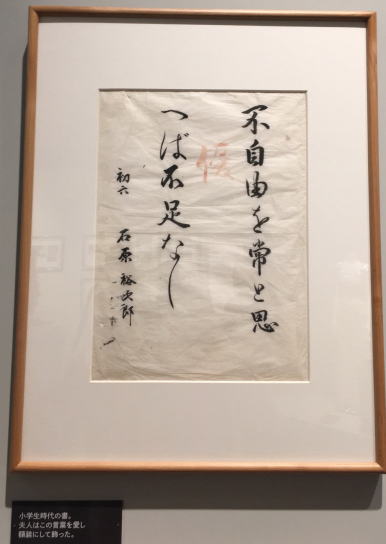 不自由を常と思
へば不足なし
初六 石原裕次郎
優
小学生時代の書。
夫人はこの言葉を愛し
額装にして飾った。